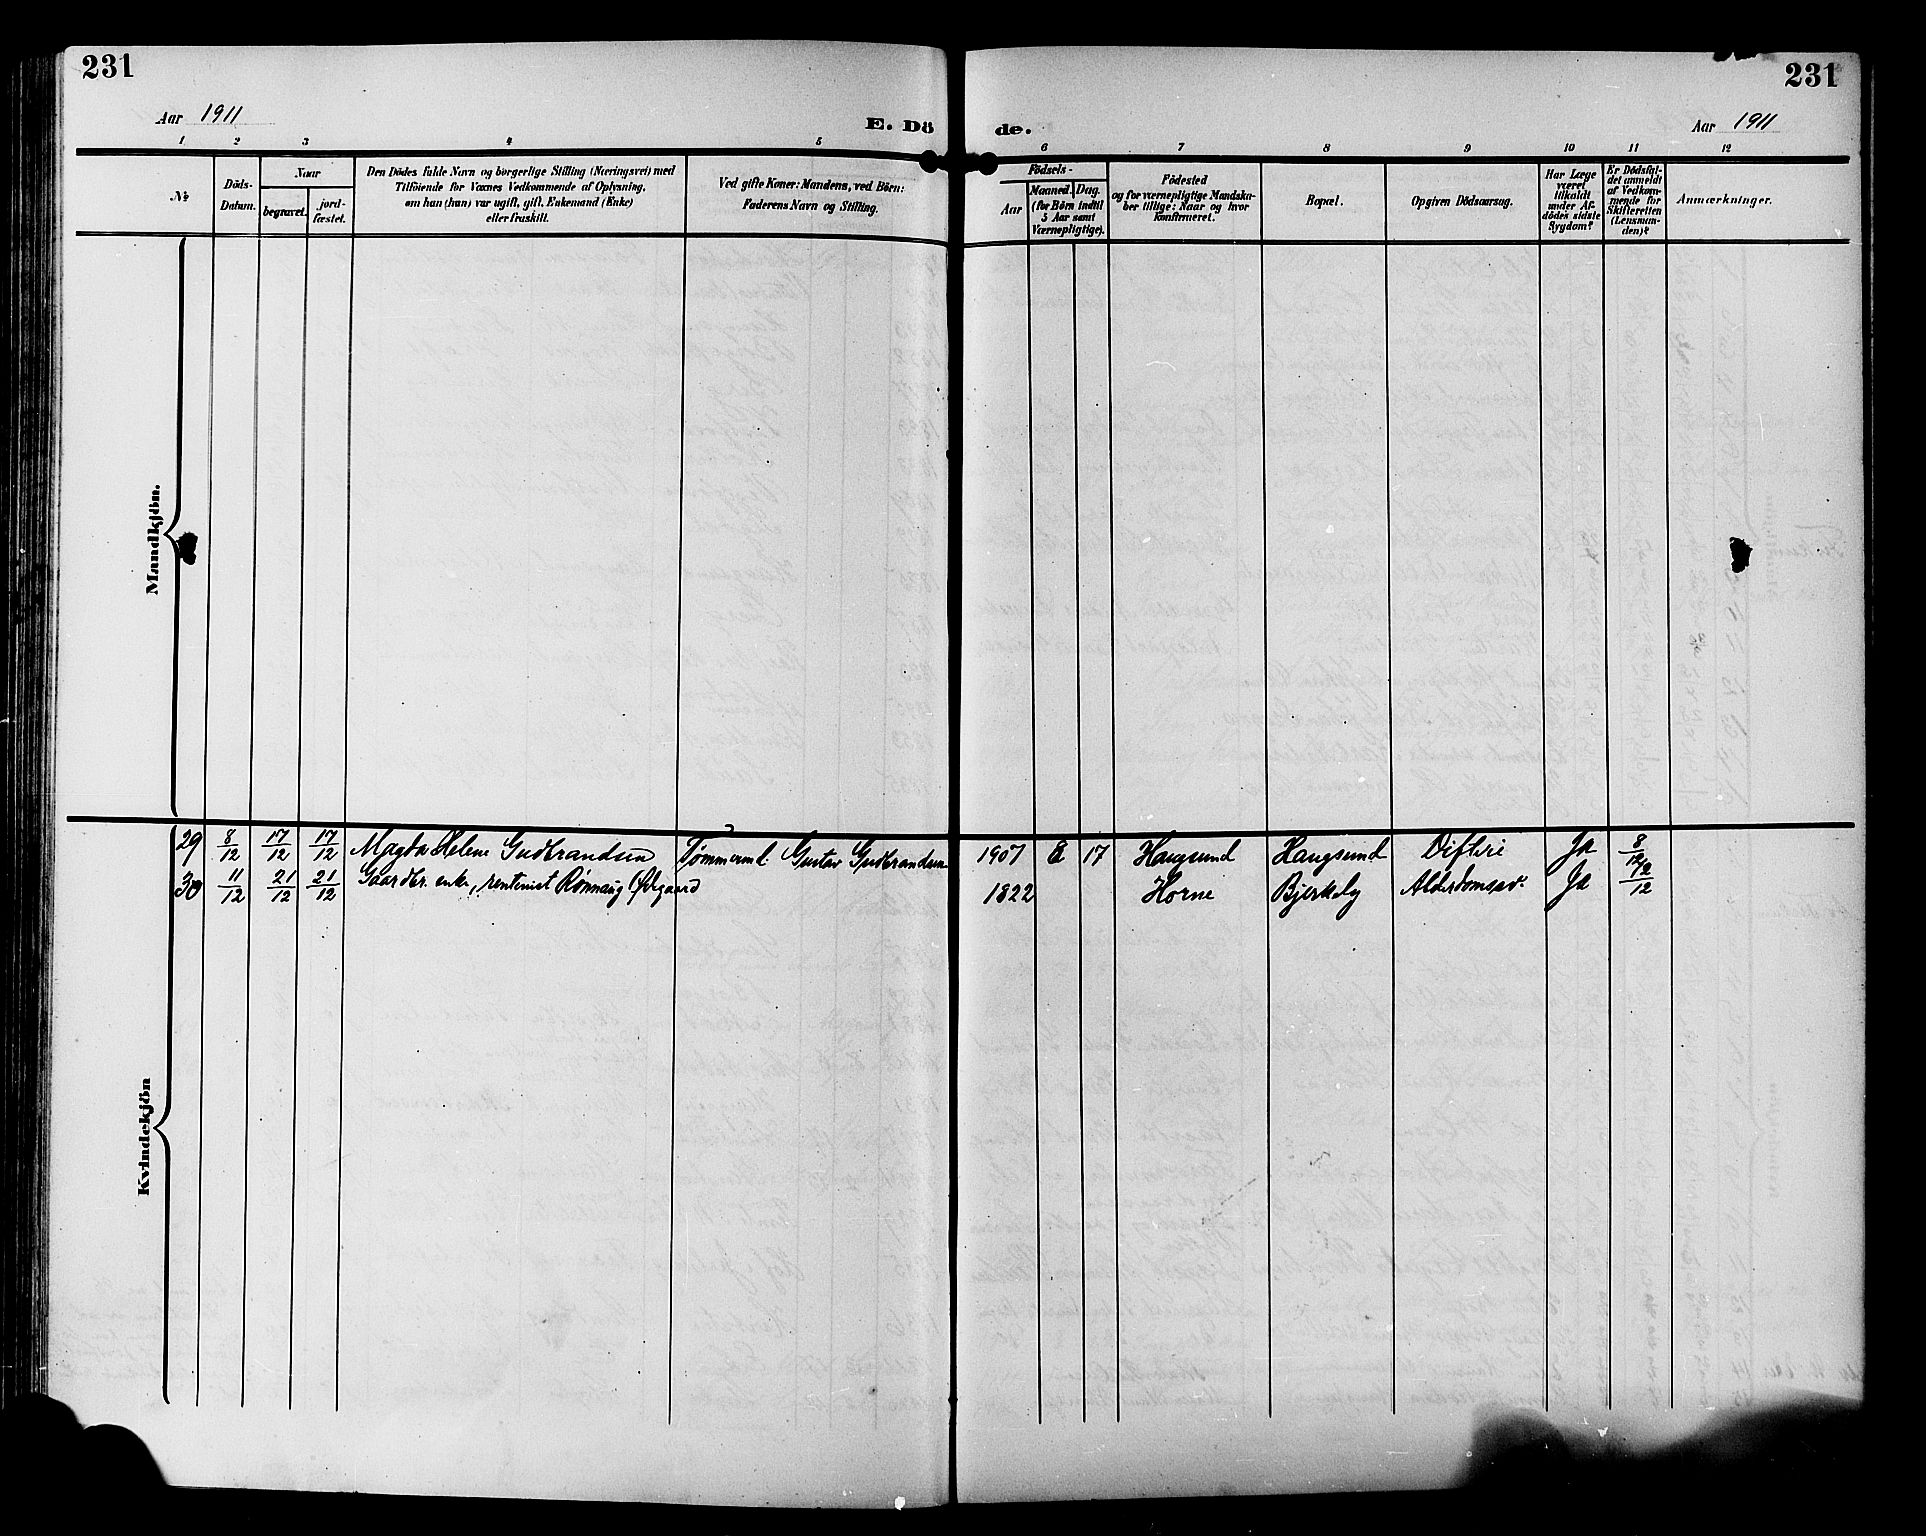 231
231
Aar 1911
E. Dö
de.
Aar 1911
1 2 3 4 5 6 7 8 9 10 11 12
No
Döds-
Datum.
Naar
begravet.
jord-
fæstet.
Den Dödes fulde Navn og borgerlige Stilling (Næringsvei) med
Tilföiende for Voxnes Vedkommende af Oplysning,
om han (hun) var ugift, gift, Enkemand (Enke)
eller fraskilt.
Ved gifte Koner: Mandens, ved Börn:
Faderens Navn og Stilling.
Födsels-
Aar
Maaned. Dag.
(for Börn indtil
5 Aar samt
Værnepligtige).
Födested
og for værnepligtige Mandska-
ber tillige: Naar og hvor
konfirmeret.
Bopæl.
Opgiven Dödsaarsag.
Har Læge
været
tilkaldt
under Af-
dödes sidste
Sygdom?
Er Dödsfal-
det anmeldt
af Vedkom-
mende for
Skifteretten
(Lensman-
den)?
Anmærkninger.
Mandkjön.
29 8/12 17/12 17/12 Magda Helene Gudbrandsen Tømmermd. Gustav Gudbrandsen 1907 17 Haugsund Haugsund Difteri Ja 8/12
30 11/12 21/12 21/12 Gaardbr. enke, rentenist Rønnaug Ødegaard 1822 Horne Bjerkely Alderdomssv. Ja 12/12
Kvindekjön